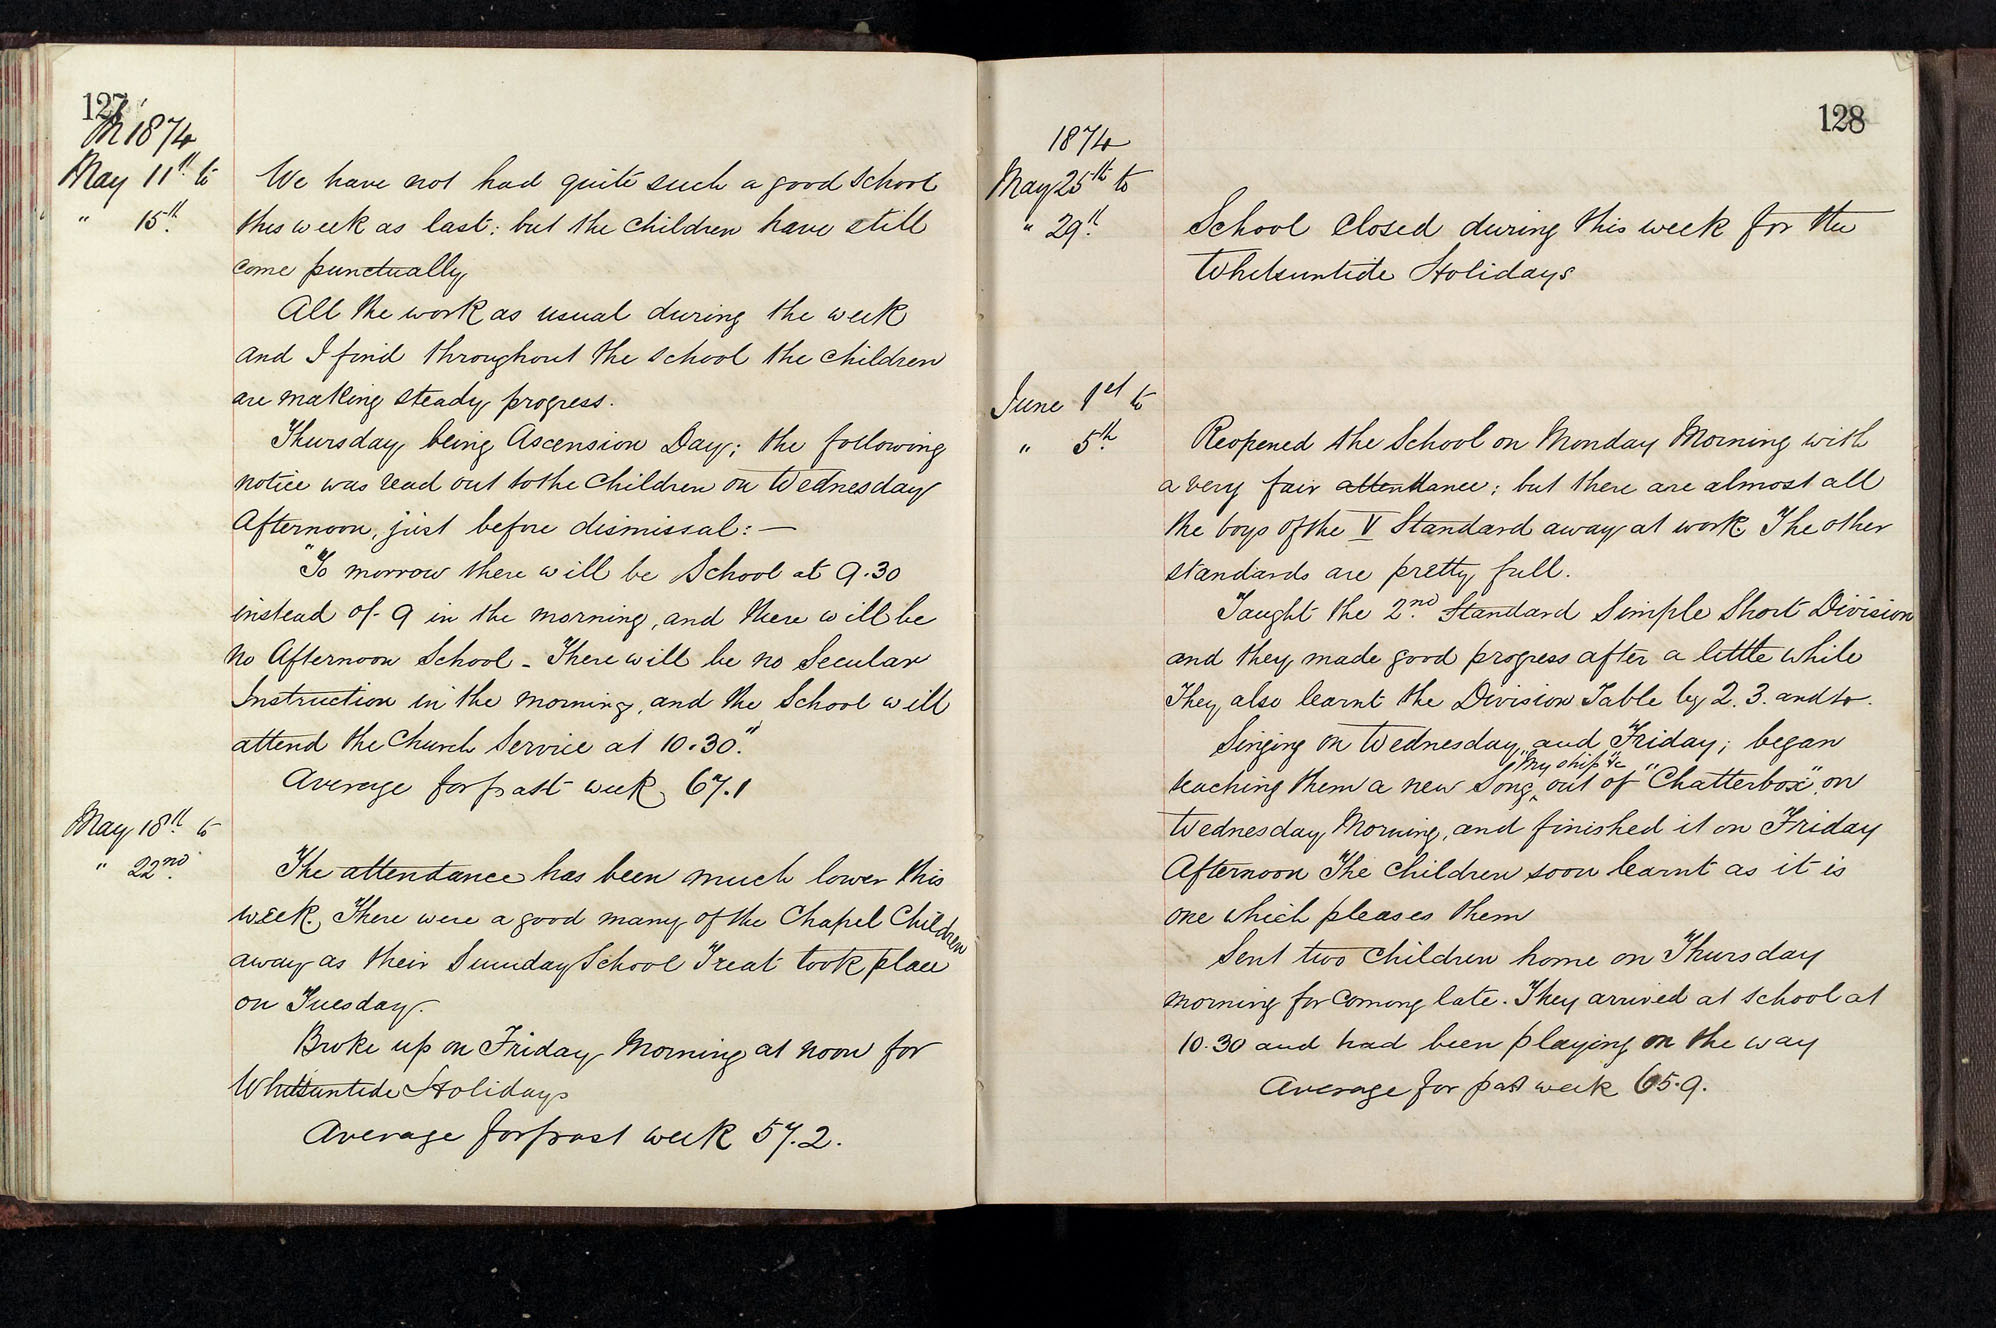 127
1874
May 11th to
" 15th.
We have not had quite such a good School
this week as last: but the children have still
come punctually
All the work as usual during the week
and I find throughout the school the children
are making steady progress.
Thursday being Ascension Day; the following
notice was read out to the Children on Wednesday
Afternoon, just before dismissal: —
"To morrow there will be School at 9.30
instead of 9 in the morning, and there will be
no Afternoon School - There will be no Secular
Instruction in the morning, and the School will
attend the Church Service at 10.30."
Average for past week 67.1
May 18th. to
" 22nd.
The attendance has been much lower this
week. There were a good many of the Chapel Children
away as their Sunday School Treat took place
on Tuesday.
Broke up on Friday Morning at noon for
Whitsuntide Holidays
Average for past week 57.2.
128
1874
May 25th to
" 29th.
School closed during this week for the
Whitsuntide Holidays
June 1st to
" 5th.
Reopened the School on Monday Morning with
a very fair attendance; but there are almost all
the boys of the V Standard away at work. The other
standards are pretty full.
Taught the 2nd. Standard Simple Short Division
and they made good progress after a little while
They also learnt the Division Table by 2. 3. and 4.
Singing on Wednesday and Friday; began
"My ship" &c
teaching them a new Song, out of "Chatterbox", on
Wednesday Morning, and finished it on Friday
Afternoon The Children soon learnt as it is
one which pleases them
Sent two children home on Thursday
morning for coming late. They arrived at school at
10.30 and had been playing on the way
Average for past week 65.9.